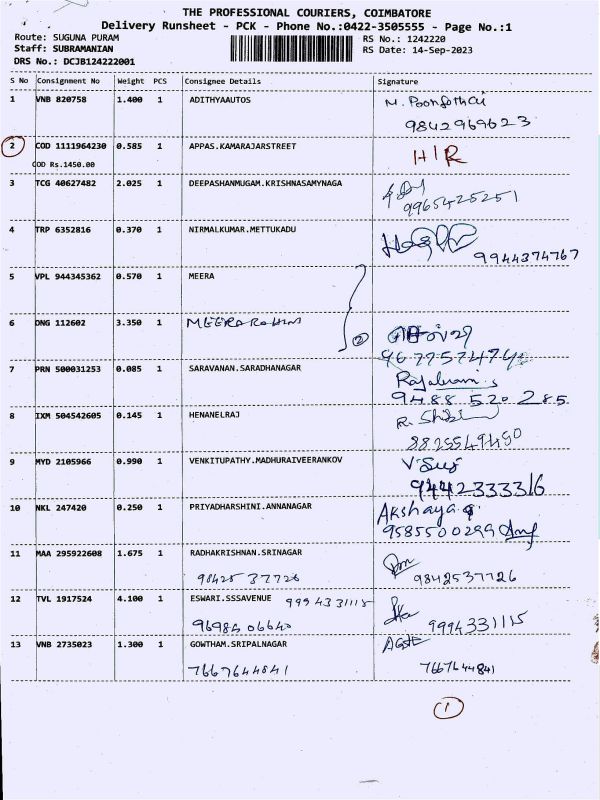 THE PROFESSIONAL COURIERS, COIMBATORE
Delivery Runsheet - PCK - Phone No.:0422-3505555 - Page No.:1
Route: SUGUNA PURAM RS No.: 1242220
Staff: SUBRAMANIAN RS Date: 14-Sep-2023
DRS No.: DCJB124222001
S No Consignment No Weight PCS Consignee Details Signature
1 VNB 820758 1.400 1 ADITHYAAUTOS M. Poongothai
9842969623
2 COD 1111964230 0.585 1 APPAS.KAMARAJARSTREET H/R
COD Rs.1450.00
3 TCG 40627482 2.025 1 DEEPASHANMUGAM.KRISHNASAMYNAGA
9965425251
4 TRP 6352816 0.370 1 NIRMALKUMAR.METTUKADU
9944374767
5 VPL 944345362 0.570 1 MEERA
6 DNG 112602 3.350 1 MEERA
2
7 PRN 500031253 0.085 1 SARAVANAN.SARADHANAGAR
9488 520 285
8 IXM 504542605 0.145 1 HENANELRAJ R. Shibi
9 MYD 2105966 0.990 1 VENKITUPATHY.MADHURAIVEERANKOV
9442333316
10 NKL 247420 0.250 1 PRIYADHARSHINI.ANNANAGAR Akshaya
9585500299
11 MAA 295922608 1.675 1 RADHAKRISHNAN.SRINAGAR
98425 37726 9842537726
12 TVL 1917524 4.100 1 ESWARI.SSSAVENUE 9994331115
9698506640 9994331115
13 VNB 2735023 1.300 1 GOWTHAM.SRIPALNAGAR
7667644841 7667644841
1